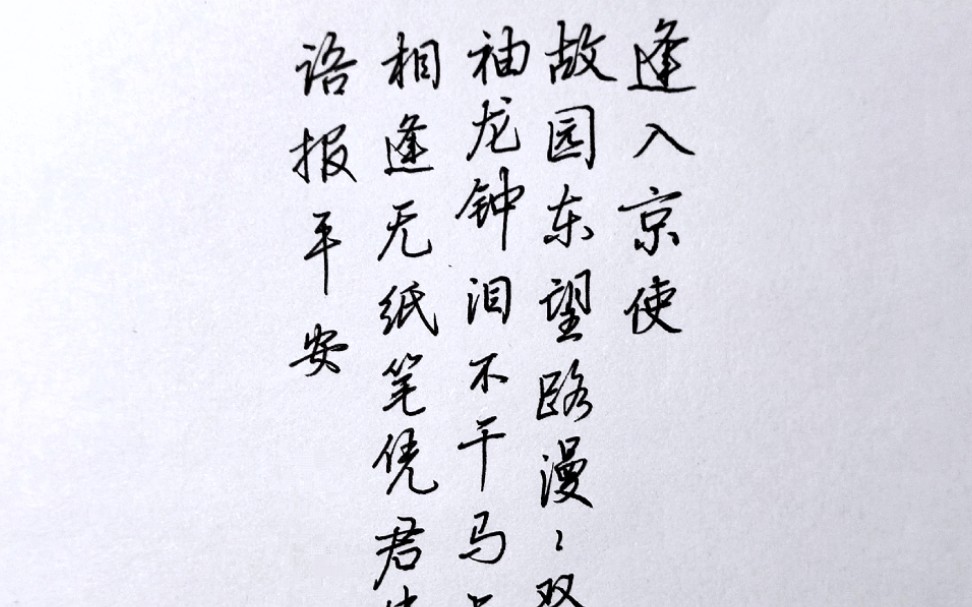 逢入京使
故园东望路漫ㄑ双
袖龙钟泪不干马
相逢无纸笔凭君
语报平安